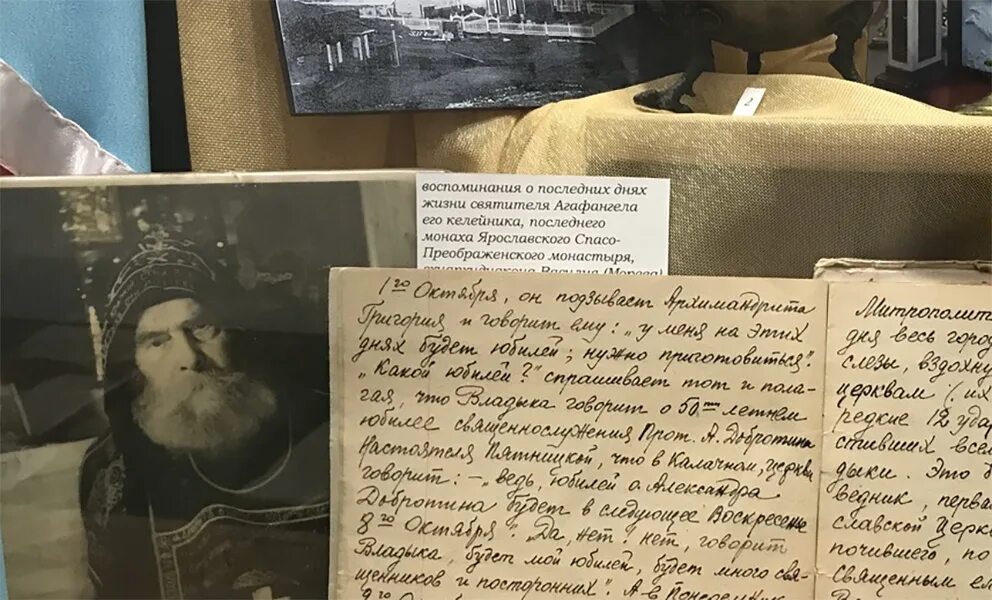 2
воспоминания о последних днях
жизни святителя Агафангела
его келейника, последнего
монаха Ярославского Спасо-
Преображенского монастыря,
архидиакона Василия (Морева)
1го Октября, он подзывает Архимандрита
Григория и говорит ему: „у меня на этих
днях будет юбилей; нужно приготовиться".
„Какой юбилей?" спрашивает тот и пола-
гая, что Владыка говорит о 50ти летнем
юбилее священнослужения Прот. А. Добротина
Настоятеля Пятницкой, что в Калачном, церкви
говорит: — „ведь, юбилей о. Александра
Добротина будет в следующее Воскресенье
8го Октября". „Да, нет, нет, говорит
Владыка, будет мой юбилей, будет много свя-
щенников и посторонних". А в Понедельник
9го
Митрополит
дня весь горо
слезы, вздохну
церквам (их
редкие 12 уда
стивших все
дыки. Это б
ведник, перва
славской Церк
почившего, по
священным